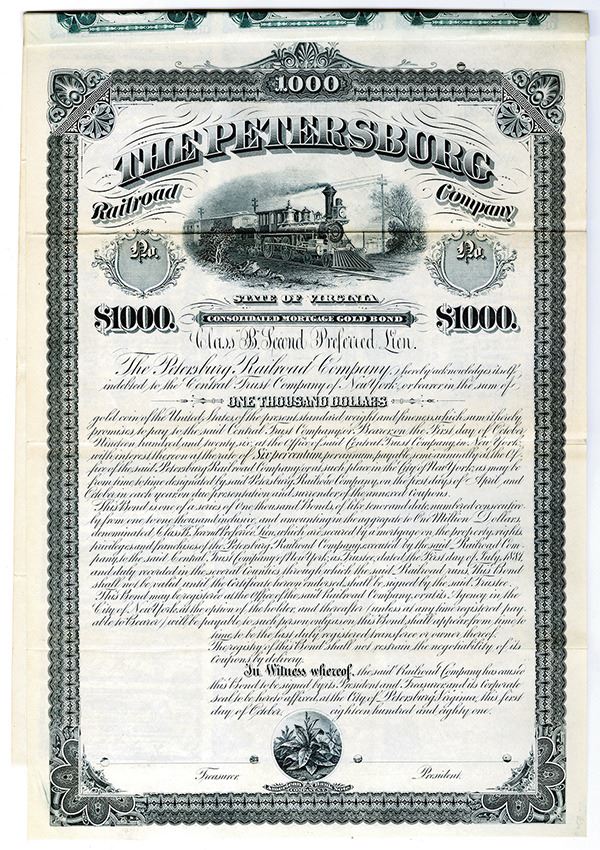 1000
THE PETERSBURG
Railroad Company
No. No.
STATE OF VIRGINIA
$1000. CONSOLIDATED MORTGAGE GOLD BOND $1000.
Class B Second Preferred Lien.
The Petersburg Railroad Company, hereby acknowledges itself
indebted to the Central Trust Company of New York or bearer in the sum of
ONE THOUSAND DOLLARS
gold coin of the United States, of the present standard weight and fineness, which sum it hereby
promises to pay to the said Central Trust Company, or Bearer, on the First day of October
Nineteen hundred and twenty six, at the Office of said Central Trust Company, in New York,
with interest thereon at the rate of Six per centum, per annum, payable semi-annually at the Of-
fice of the said Petersburg Railroad Company, or at such place in the City of New York, as may be
from time to time designated by said Petersburg Railroad Company, on the first days of April and
October, in each year, on due presentation and surrender of the annexed Coupons.
This Bond is one of a series of One thousand Bonds, of like tenor and date, numbered consecutive-
ly from one to one thousand inclusive, and amounting in the aggregate to One Million Dollars
denominated Class B, Second Preferred Lien, which are secured by a mortgage on the property, rights
privileges and franchises of the Petersburg Railroad Company, executed by the said Railroad Com-
pany, to the said Central Trust Company of New York, as Trustee, dated the First day of July, 1881,
and duly recorded in the several Counties through which the said Railroad runs. This Bond
shall not be valid until the Certificate hereon endorsed, shall be signed by the said Trustee.
This Bond may be registered at the Office of the said Railroad Company, or at its Agency in the
City of New York, at the option of the holder, and thereafter (unless at any time registered pay-
able to Bearer) will be payable to such person only, as on this Bond shall appear from time to
time, to be the last duly registered transferee or owner thereof.
The registry of this Bond shall not restrain the negotiability of its
Coupons by delivery.
In Witness whereof, the said Railroad Company has caused
this Bond to be signed by its President and Treasurer and its Corporate
seal to be hereto affixed, at the City of Petersburg, Virginia, this first
day of October, eighteen hundred and eighty one.
Treasurer. President.